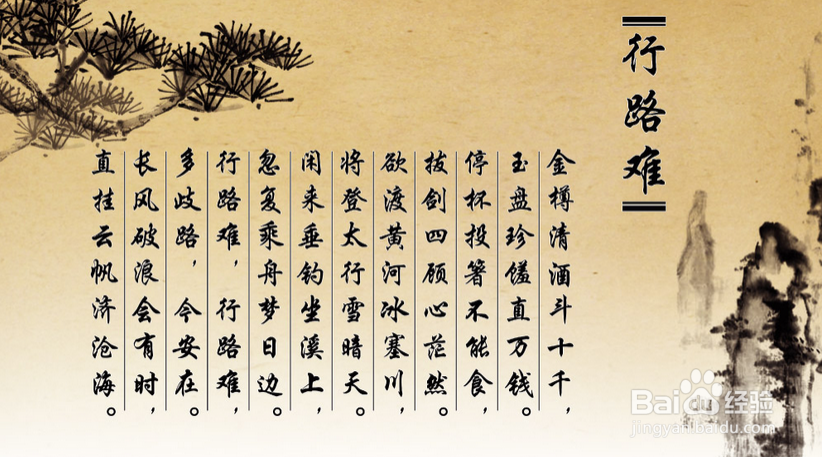 行路难
金樽清酒斗十千，
玉盘珍馐直万钱。
停杯投箸不能食，
拔剑四顾心茫然。
欲渡黄河冰塞川，
将登太行雪暗天。
闲来垂钓坐溪上，
忽复乘舟梦日边。
行路难，行路难，
多歧路，今安在。
长风破浪会有时，
直挂云帆济沧海。
Baidu经验
jingyan.baidu.com